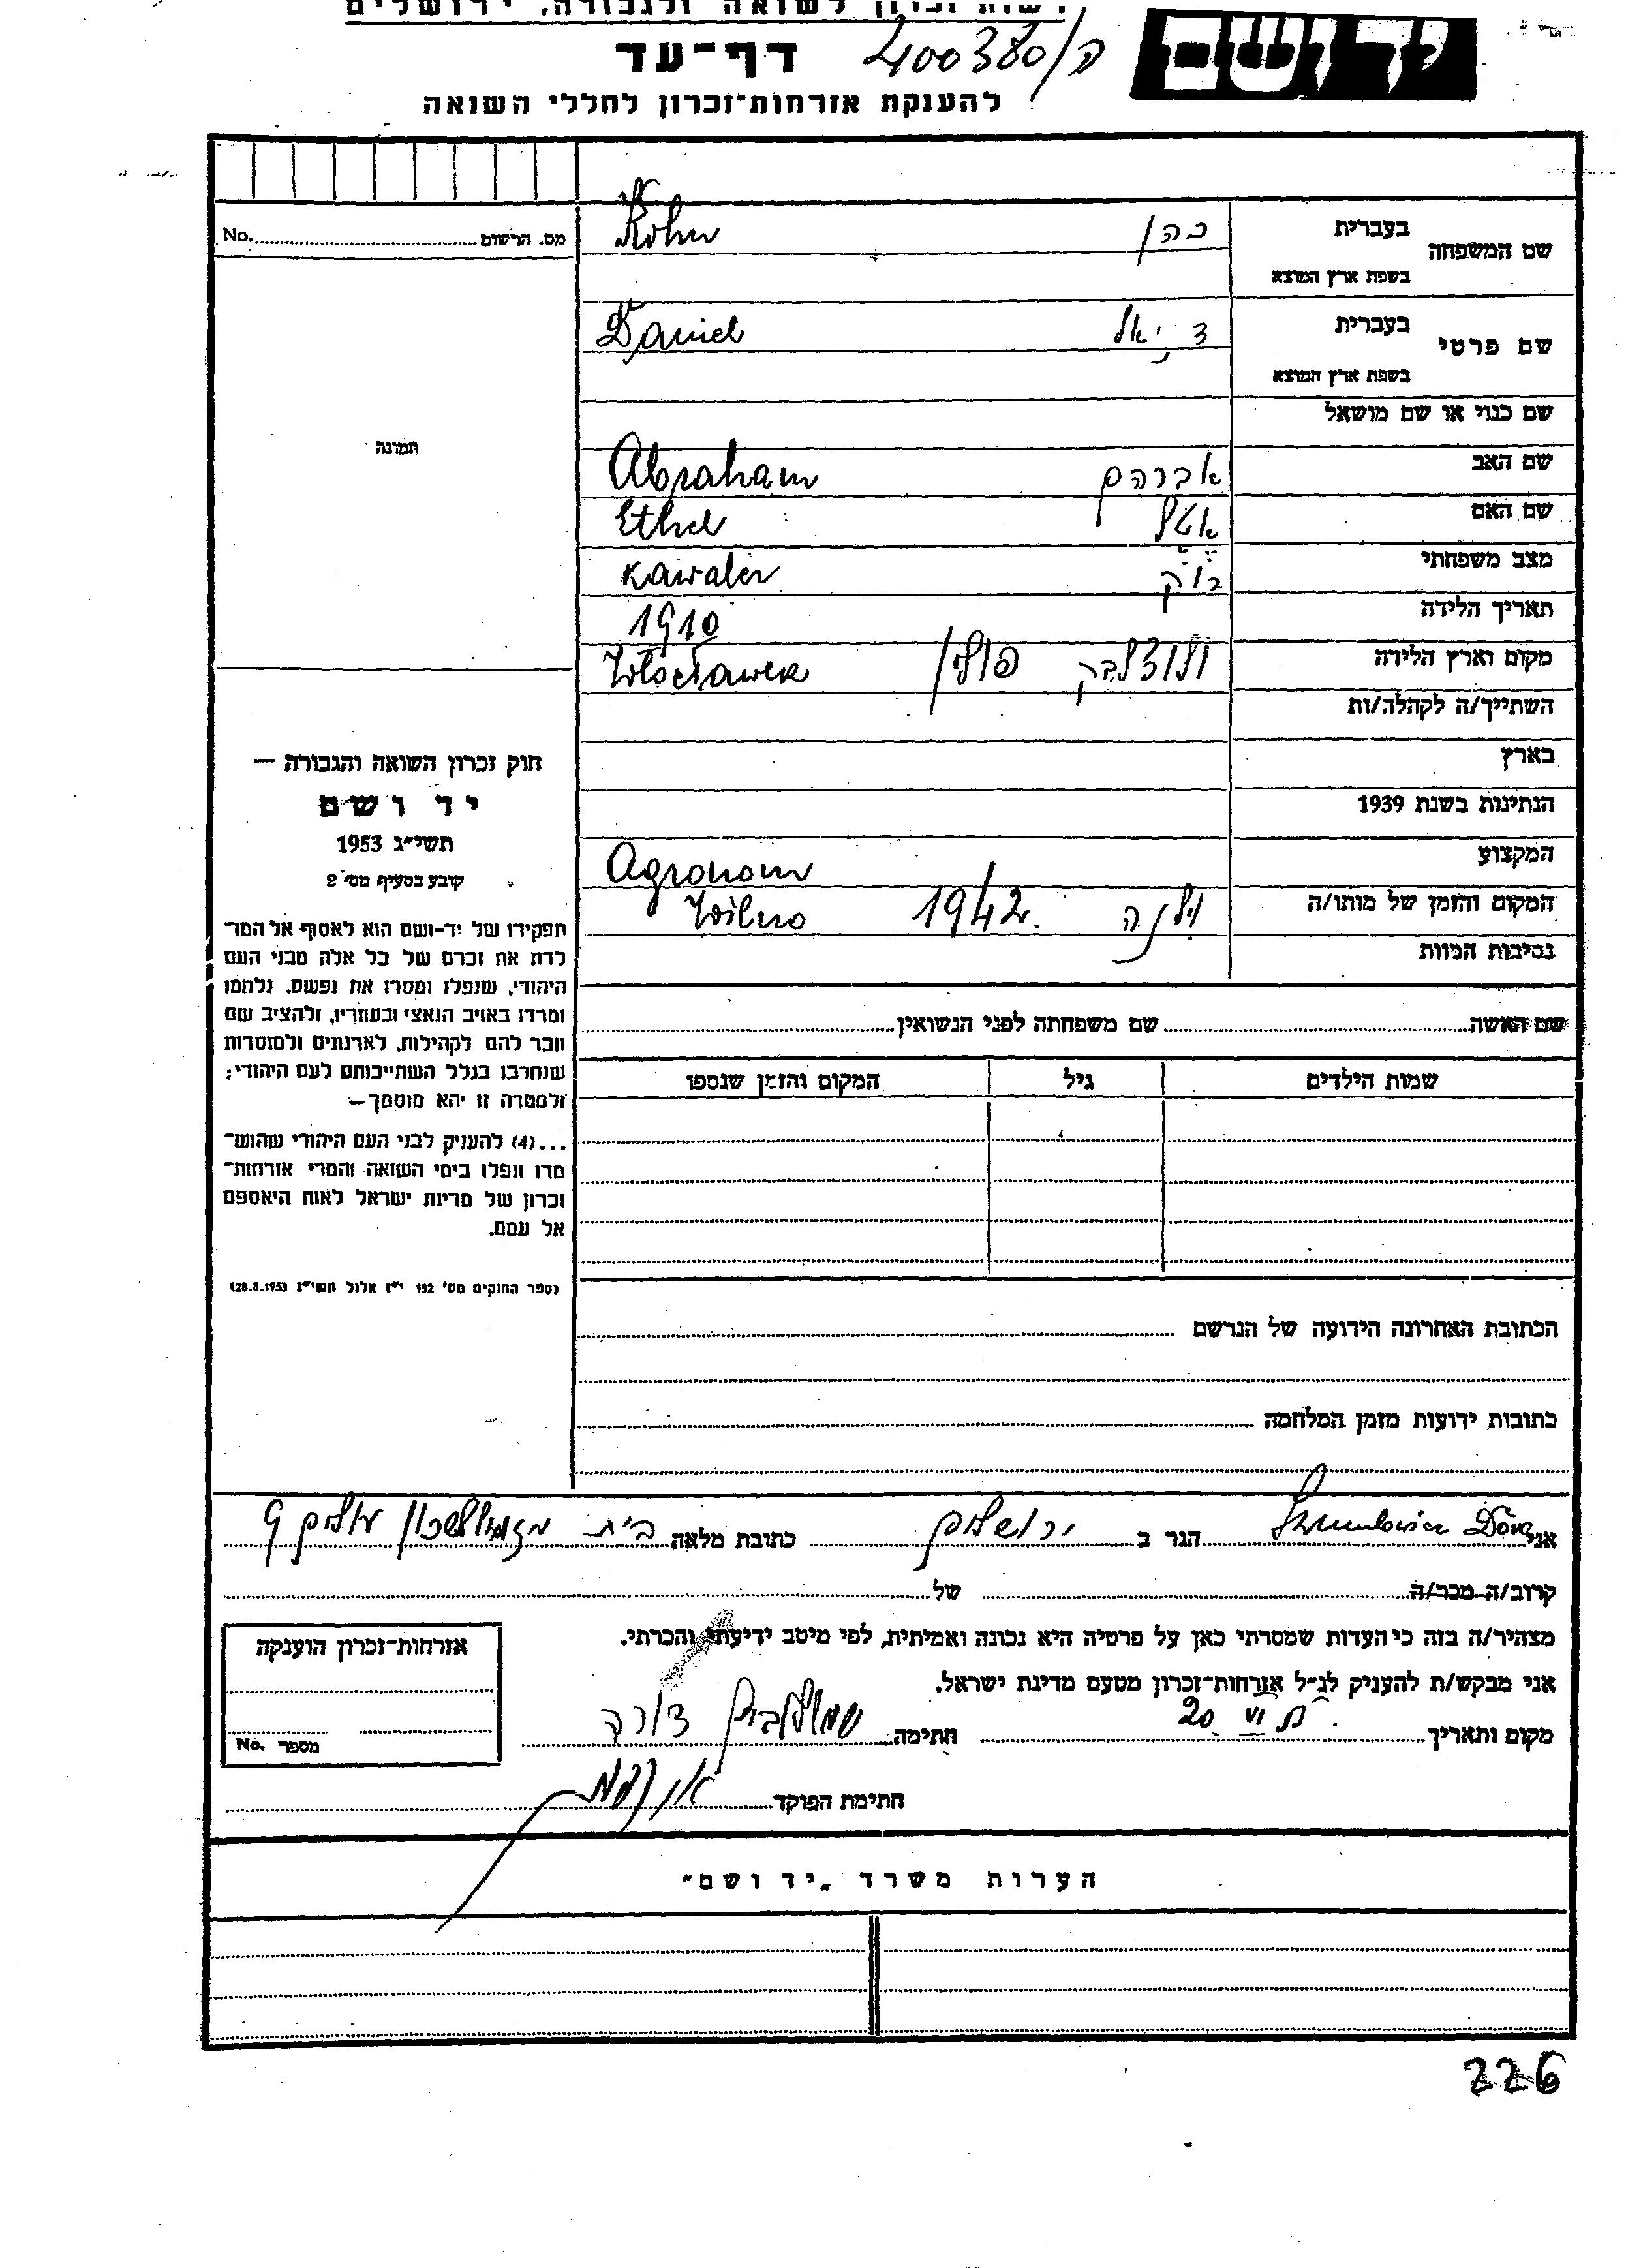 רשות זכרון לשואה ולגבורה, ירושלים
דף-עד ה/400380
יד ושם
להענקת אזרחות-זכרון לחללי השואה
שם המשפחה בעברית כהן Kohn
בשפת ארץ המוצא
מס. הרשום No.
שם פרטי בעברית דניאל Daniel
בשפת ארץ המוצא
שם כנוי או שם מושאל
תמונה
שם האב אברהם Abraham
שם האם אטל Ethel
מצב משפחתי רווק Kawaler
תאריך הלידה 1910
מקום וארץ הלידה ולוצלבק פולין Włocławek
השתייך/ה לקהלה/ות
בארץ
הנתינות בשנת 1939
המקצוע Agronom
המקום והזמן של מותו/ה וילנה 1942. Wilno
נסיבות המוות
חוק זכרון השואה והגבורה —
יד ושם
תשי״ג 1953
קובע בסעיף מס׳ 2
תפקידו של יד-ושם הוא לאסוף אל המו־
לדת את זכרם של כל אלה מבני העם
היהודי, שנפלו ומסרו את נפשם, נלחמו
ומרדו באויב הנאצי ובעוזריו, ולהציב שם
וזכר להם לקהילות, לארגונים ולמוסדות
שנחרבו בגלל השתייכותם לעם היהודי;
ולמטרה זו יהא מוסמך —
...(4) להעניק לבני העם היהודי שהוש־
מדו ונפלו בימי השואה והמרי אזרחות־
זכרון של מדינת ישראל לאות היאספם
אל עמם.
(ספר החוקים מס׳ 132 י״ז אלול תשי״ג 28.8.1953)
שם האשה שם משפחתה לפני הנשואין
שמות הילדים גיל המקום והזמן שנספו
הכתובת האחרונה הידועה של הנרשם
כתובות ידועות מזמן המלחמה
אני Szmulowicz Dora הגר ב ירושלים כתובת מלאה בית
קרוב/ה מכר/ה של
מצהיר/ה בזה כי העדות שמסרתי כאן על פרטיה היא נכונה ואמיתית, לפי מיטב ידיעתי והכרתי.
אני מבקש/ת להעניק לנ״ל אזרחות־זכרון מטעם מדינת ישראל.
מקום ותאריך 20 VI חתימה שמולביץ דורה
חתימת הפוקד
אזרחות־זכרון הוענקה
מספר No.
הערות משרד „יד ושם״
226